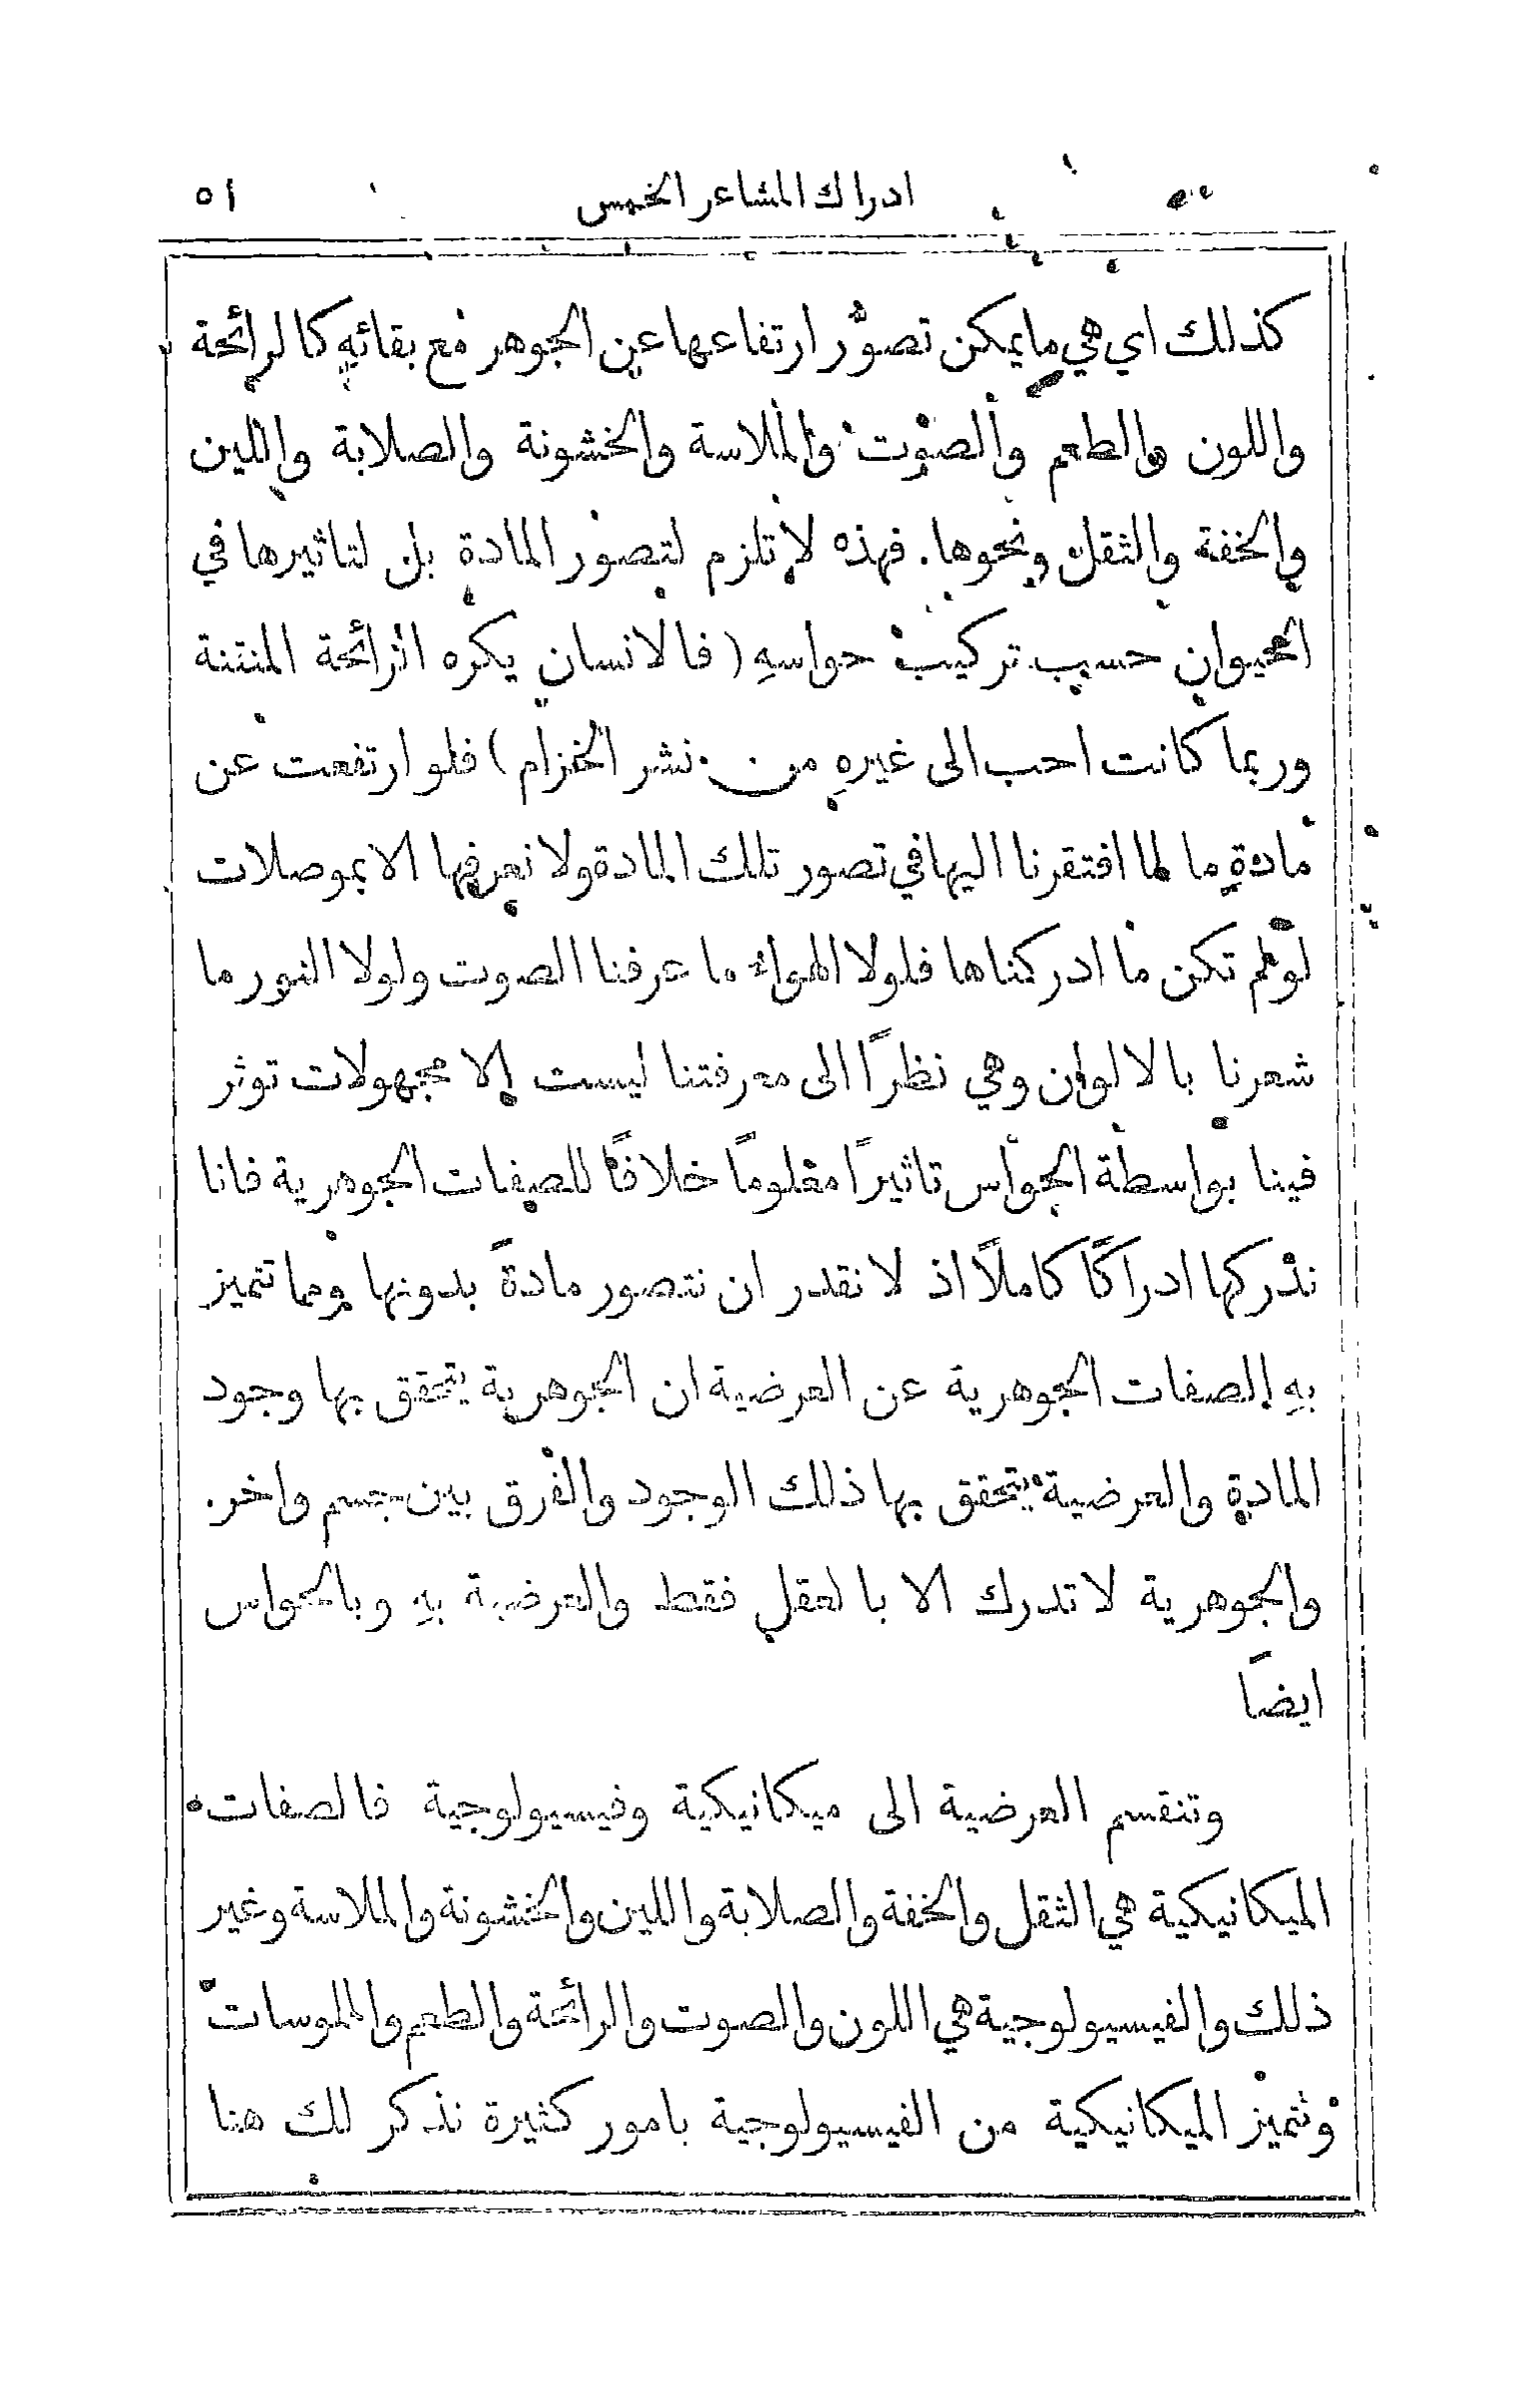 ادراك المشاعر الخمس ٥١
كذلك اي هي ما يمكن تصوُّر ارتفاعها عن الجوهر مع بقائهِ كالرائحة
واللون والطعم والصوت والملاسة والخشونة والصلابة واللين
والخفة والثقل ونحوها. فهذه لا تلزم لتصور المادة بل لتاثيرها في
الحيوان حسب تركيب حواسهِ (فالانسان يكره الرائحة المنتنة
وربما كانت احب الى غيرهِ من نشر الخزام) فلو ارتفعت عن
مادةٍ ما لما افتقرنا اليها في تصور تلك المادة ولا نعرفها الا بموصلات
لو لم تكن ما ادركناها فلولا الهواء ما عرفنا الصوت ولولا النور ما
شعرنا بالالوان وهي نظرًا الى معرفتنا ليست إلا مجهولات توثر
فينا بواسطة الحواس تاثيرًا معلومًا خلافًا للصفات الجوهرية فانا
ندركها ادراكًا كاملًا اذ لا نقدر ان نتصور مادةً بدونها ومما تتميز
بهِ الصفات الجوهرية عن العرضية ان الجوهرية يتحقق بها وجود
المادة والعرضية يتحقق بها ذلك الوجود والفرق بين جسم واخر.
والجوهرية لا تدرك الا بالعقل فقط والعرضية بهِ وبالحواس
ايضًا
وتنقسم العرضية الى ميكانيكية وفيسيولوجية فالصفات
الميكانيكية هي الثقل والخفة والصلابة واللين والخشونة والملاسة وغير
ذلك والفيسيولوجية هي اللون والصوت والرائحة والطعم والملموسات
وتتميز الميكانيكية من الفيسيولوجية بامور كثيرة نذكر لك هنا